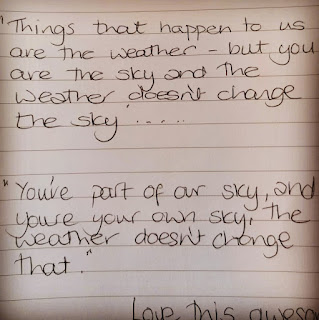 "Things that happen to us
are the weather - but you
are the sky and the
weather doesn't change
the sky .....
"You're part of our sky, and
you're your own sky, the
weather doesn't change
that."
Love this aweso